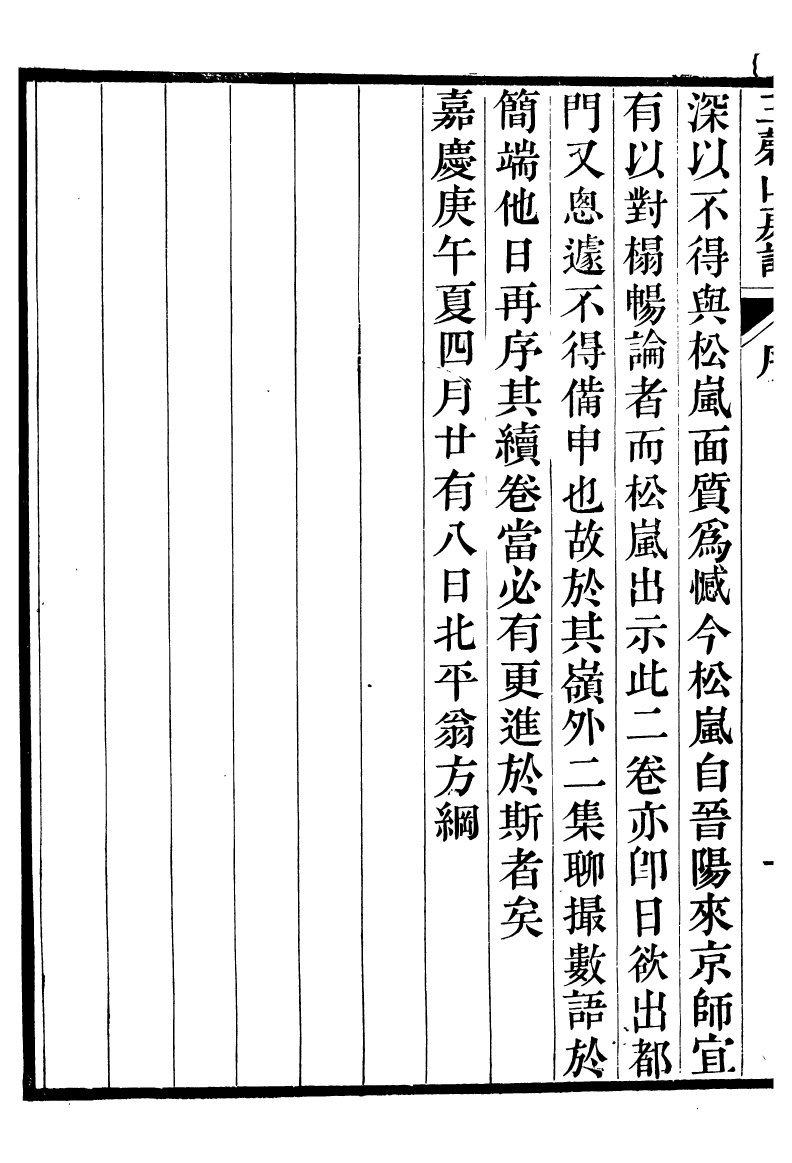 深以不得與松嵐面質爲憾今松嵐自晉陽來京師宜
有以對榻暢論者而松嵐出示此二卷亦卽日欲出都
門又悤遽不得備申也故於其嶺外二集聊撮數語於
簡端他日再序其續卷當必有更進於斯者矣
嘉慶庚午夏四月廿有八日北平翁方綱